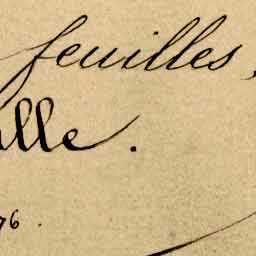 feuilles,
lle.
76.